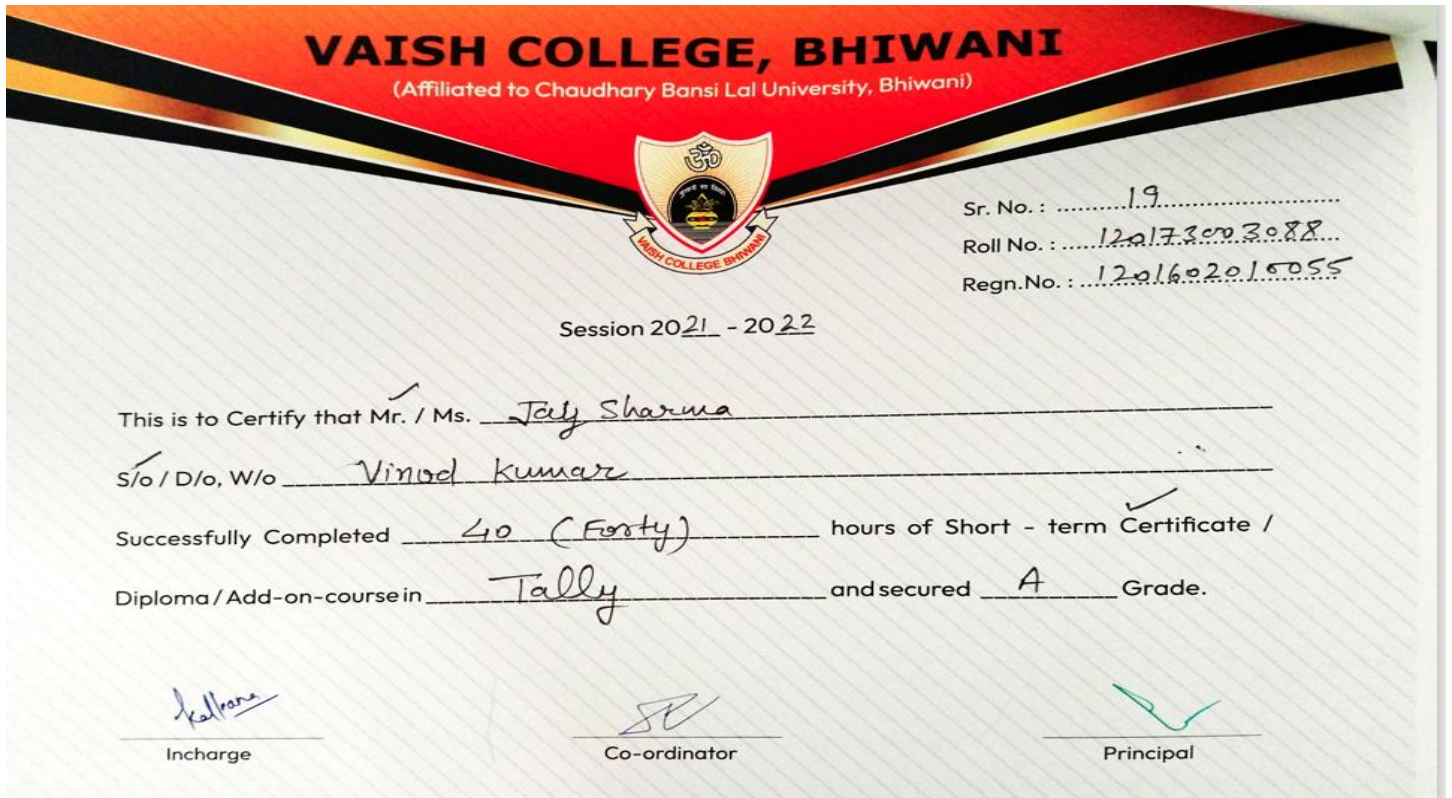 VAISH COLLEGE, BHIWANI
(Affiliated to Chaudhary Bansi Lal University, Bhiwani)
ॐ
VAISH COLLEGE BHIWANI
Sr. No. : 19
Roll No. : 120173003088
Regn.No. : 1201602010055
Session 2021 - 2022
This is to Certify that Mr. / Ms. Sharma
S/o / D/o, W/o Vinod Kumar
Successfully Completed 40 (Forty) hours of Short - term Certificate /
Diploma / Add-on-course in Tally and secured A Grade.
Incharge Co-ordinator Principal